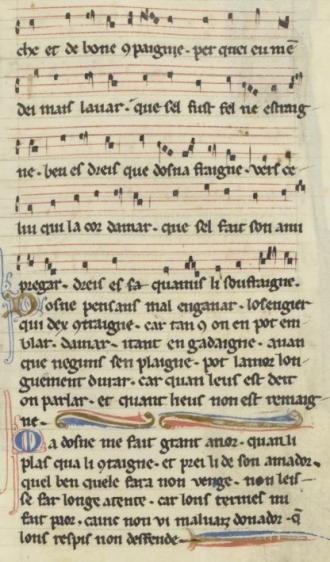 che et de bone ꝯpaignie. per quei eu mē
dei mais lauar. que sel fust fel ne estraig
ne. ben es dreis que dosna fraigne. vers ce
liu qui la cor damar. que sel fait son ami
pregar. dreis es sa quamis li souffraigne.
Dosne pensans mal enganar. losengier
qui dex ꝯtraigne. car tan ꝯ on en pot em
blar. damar. itant en gadaigne. auan
que neguns sen plaigne. pot lamor lon
guement durar. car quan leus est deit
on parlar. et quant lieus non est remaig
ne.
Ma dosne me fait grant anor. quan li
plas qua li ꝯtaigne. et prei li de son amador.
quel ben quele fara non venge. non leis
se far longe atente. car lons termes mi
fait paor. cainc non vi maluaz donador. q̄
lons respis non deffende.